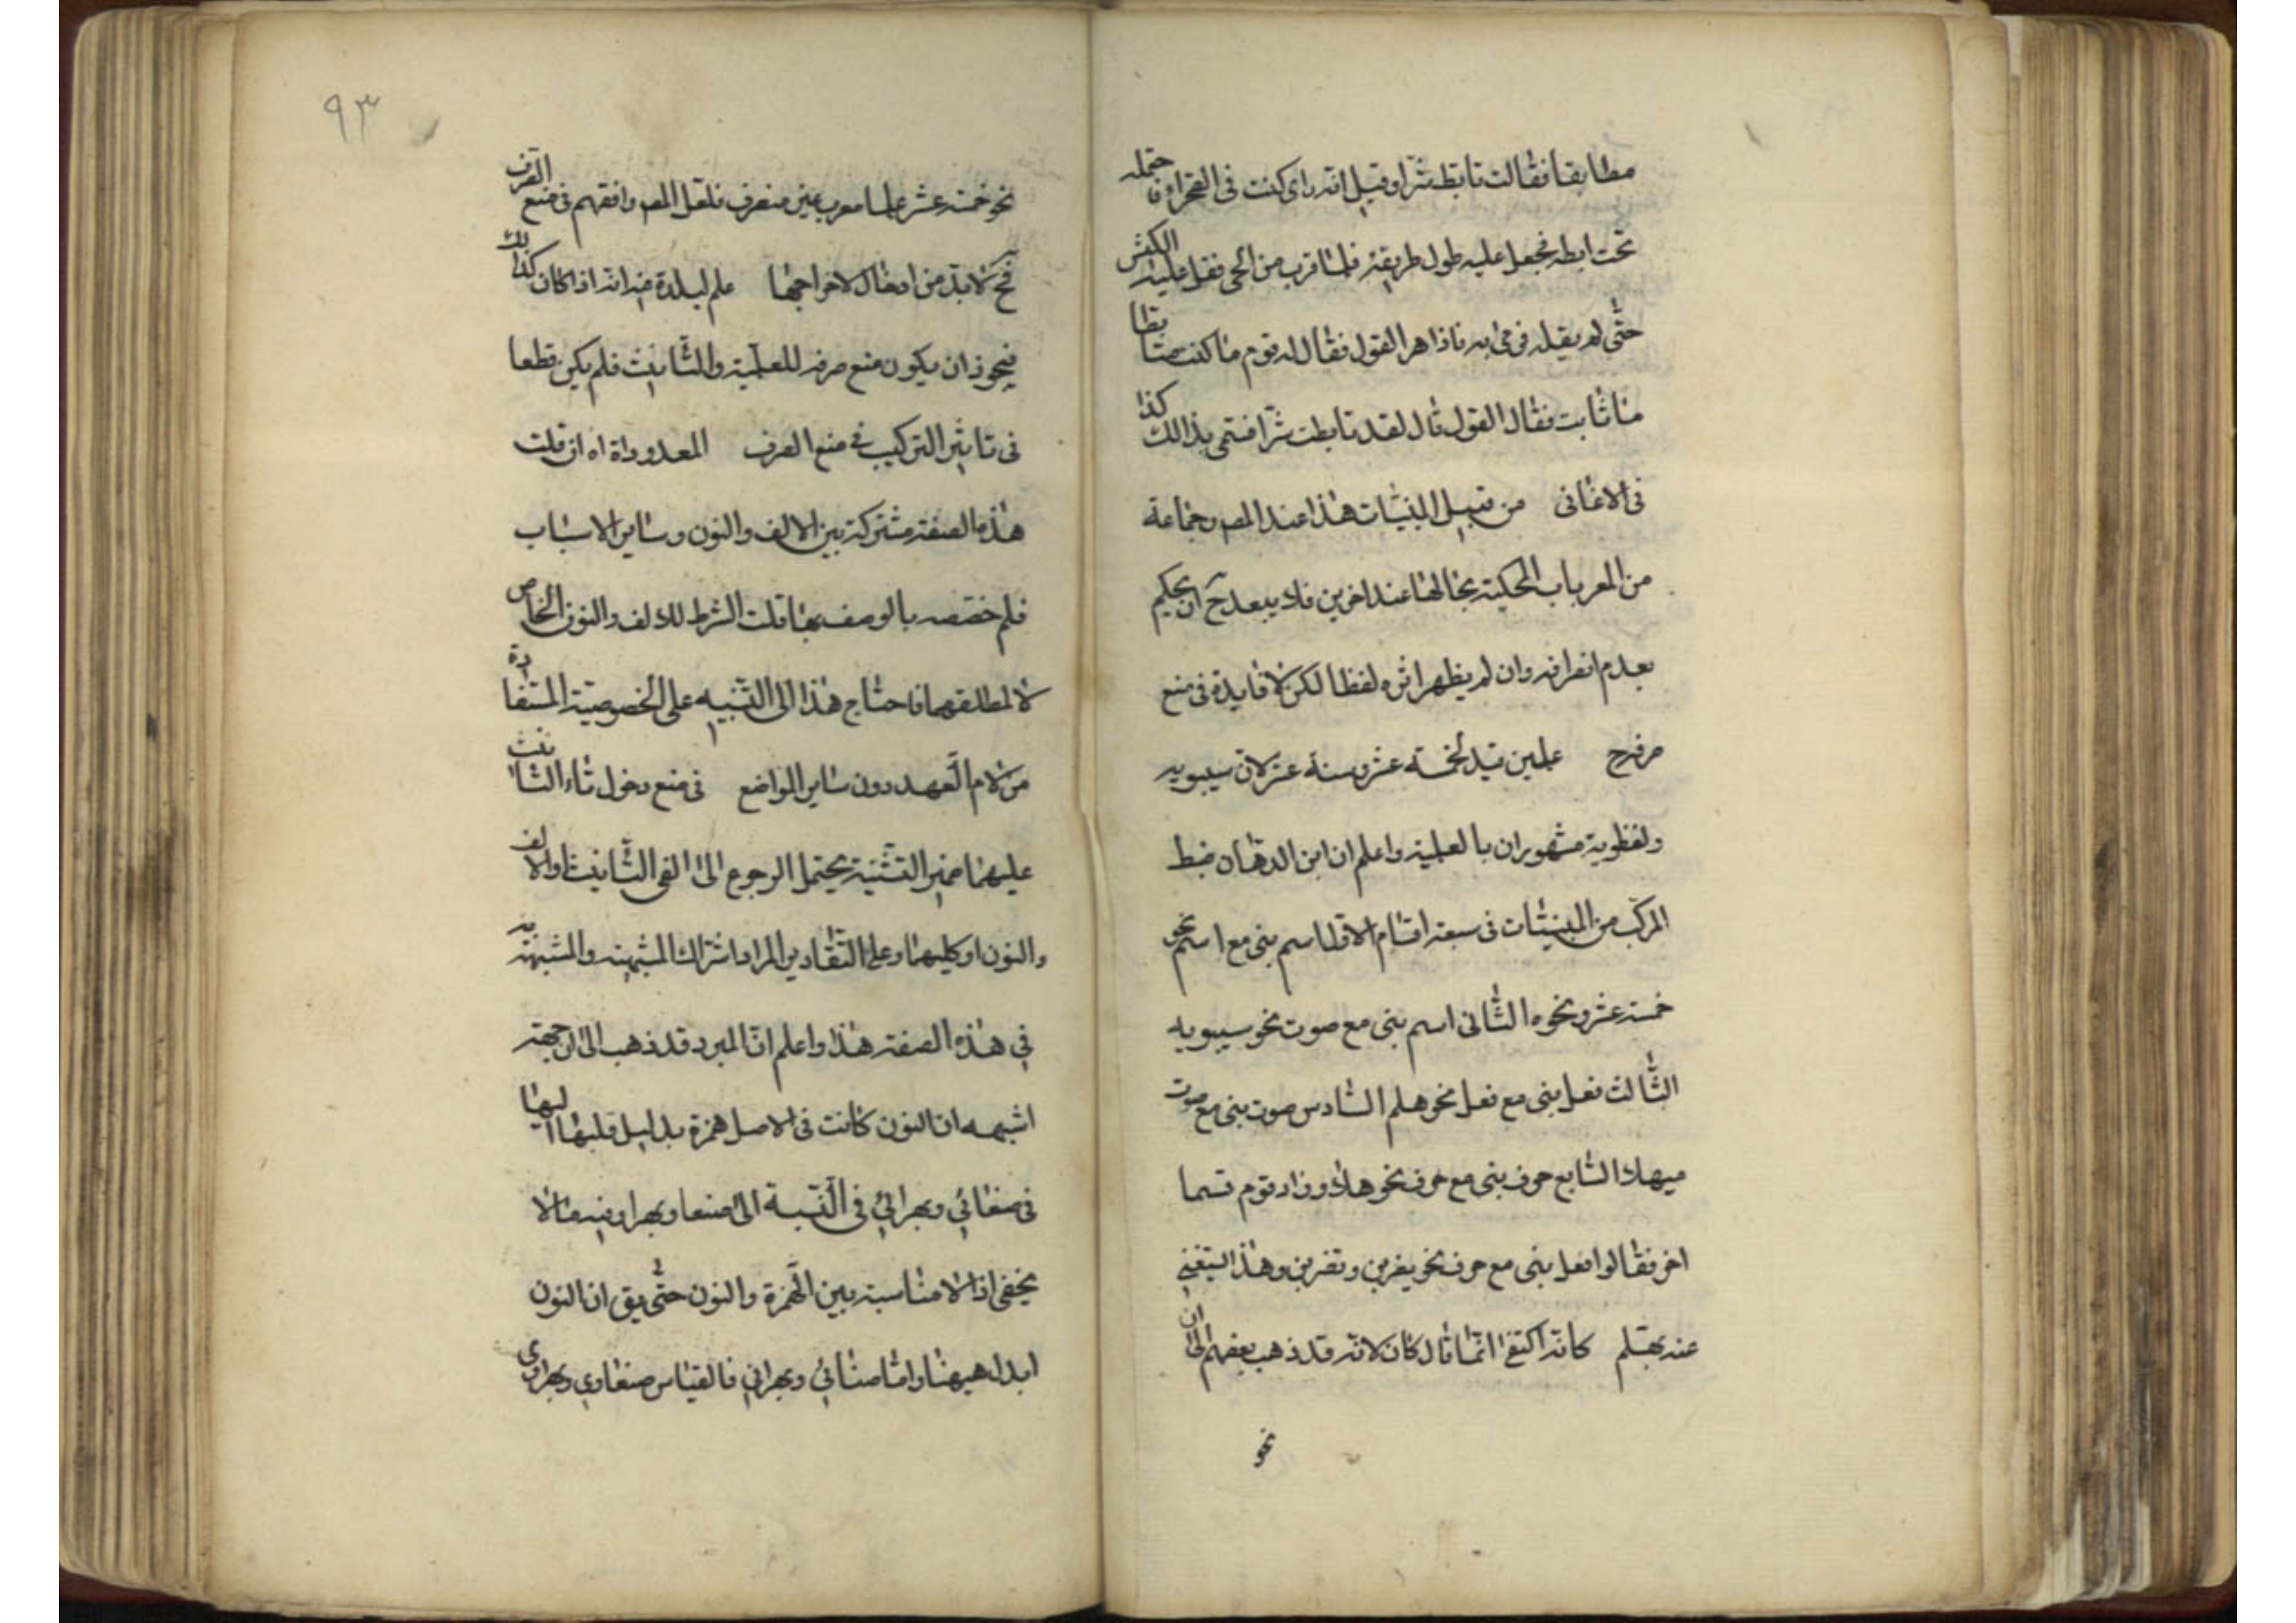 مطابقا فقالت تابط شرا وقيل انه راى كنت فى الصحراء فاحتمله
تحت ابطه فجعل عليه طول طريقه فلما قرب من الحى فقل عليه الكبش
حتى لم يقله فرمى به فاذا هو الغول فقال له قومه ما كنت متابطا
يا ثابت فقال الغول قال لقد تابطت شرا فسمى بذالك كذا
فى الاغانى من قبيل المبنيات هذا عند المص وجماعة
من المعربات المحكية بحالها عند اخرين فلا يبعد ح ان يحكم
بعدم انصرافه وان لم يظهر اثره لفظا لكن لا فايدة فى منع
صرفه ح علمين قيد لخمسة عشر وستة عشر لان سيبويه
ونفطويه مشهوران بالعلمية واعلم ان ابن الدهان ضبط
المركب من المبنيات فى سبعة اقسام الاول اسم بنى مع اسم نحو
خمسة عشر ونحوه الثانى اسم بنى مع صوت نحو سيبويه
الثالث فعل بنى مع فعل نحو هلم السادس صوت بنى مع صوت
حيهلا السابع حرف بنى مع حرف نحو هلا وزاد قوم قسما
اخر فقالوا فعل بنى مع حرف نحو يضربن وتضربن وهذا
كانه اكتفى انما قال كان لانه قد ذهب بعضهم الى ان
نحو
٩٣
نحو خمسة عشر علما معرب غير منصرف فلعل المص وافقهم فى منع الصرف
فح لا بد من لاخراجها علم لبلدة فيه انه اذا كان كذلك
فيجوز ان يكون منع صرفه للعلمية والتانيث فلم يكن قطعا
فى تاثير التركيب فى منع الصرف المعدوداة اه ان قلت
هذه الصفة مشتركة بين الالف والنون وساير الاسباب
فلم خصصه بالوصف بها قلت الشرط للالف والنون الخاص
لا لمطلقهما فاحتاج هذا الى التنبيه على الخصوصية المستفادة
من لام العهد دون ساير المواضع فى منع دخول تاء التانيث
عليهما ضمير التثنية يحتمل الرجوع الى الفى التانيث او الالف
والنون او كليهما وعلى التقادير المراد اشتراك المشبهة والمشبهة به
فى هذه الصفة هذا واعلم ان المبرد قد ذهب الى ان جهة
اشبهه ان النون كانت فى الاصل همزة بدليل قلبها اليها
فى صنعائى وبهرائى فى النسبة الى صنعا وبهرا وفيه ما لا
يخفى اذ لا مناسبة بين الهمزة والنون حتى يق ان النون
ابدل هيهنا واما صنائى وبهرانى فالقياس صنعاوى وبهراوى